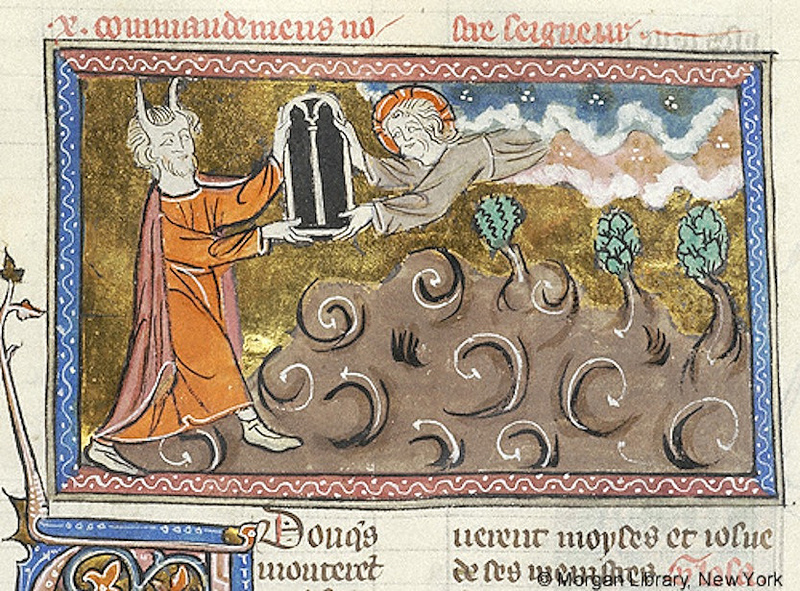 .x. commandemens no
stre seigneur.
Donq's
monteret
uerent moyses et iosue
de ses menistres
© Morgan Library, New York